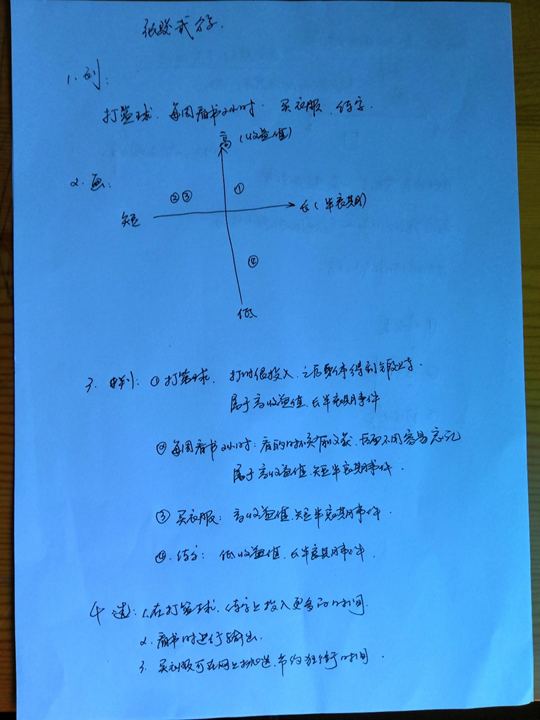 1.列:
打篮球、每周看书2小时、买衣服、练字.
高(收益值)
2.画:
② ③ ①
短 长(半衰期)
④
低
3. 判: ①打篮球. 打时很投入,之后身体得到锻炼.
属于高收益值、长半衰期事件
②每周看书2小时: 看的时候有收获,后面不用容易忘记
属于高收益值、短半衰期事件.
③ 买衣服: 高收益值、短半衰期事件.
④. 练字: 低收益值、长半衰期事件.
4 选: 1.在打篮球、练字上投入更多的时间.
2. 看书时进行输出.
3. 买衣服可在网上挑选,节约逛街时间.